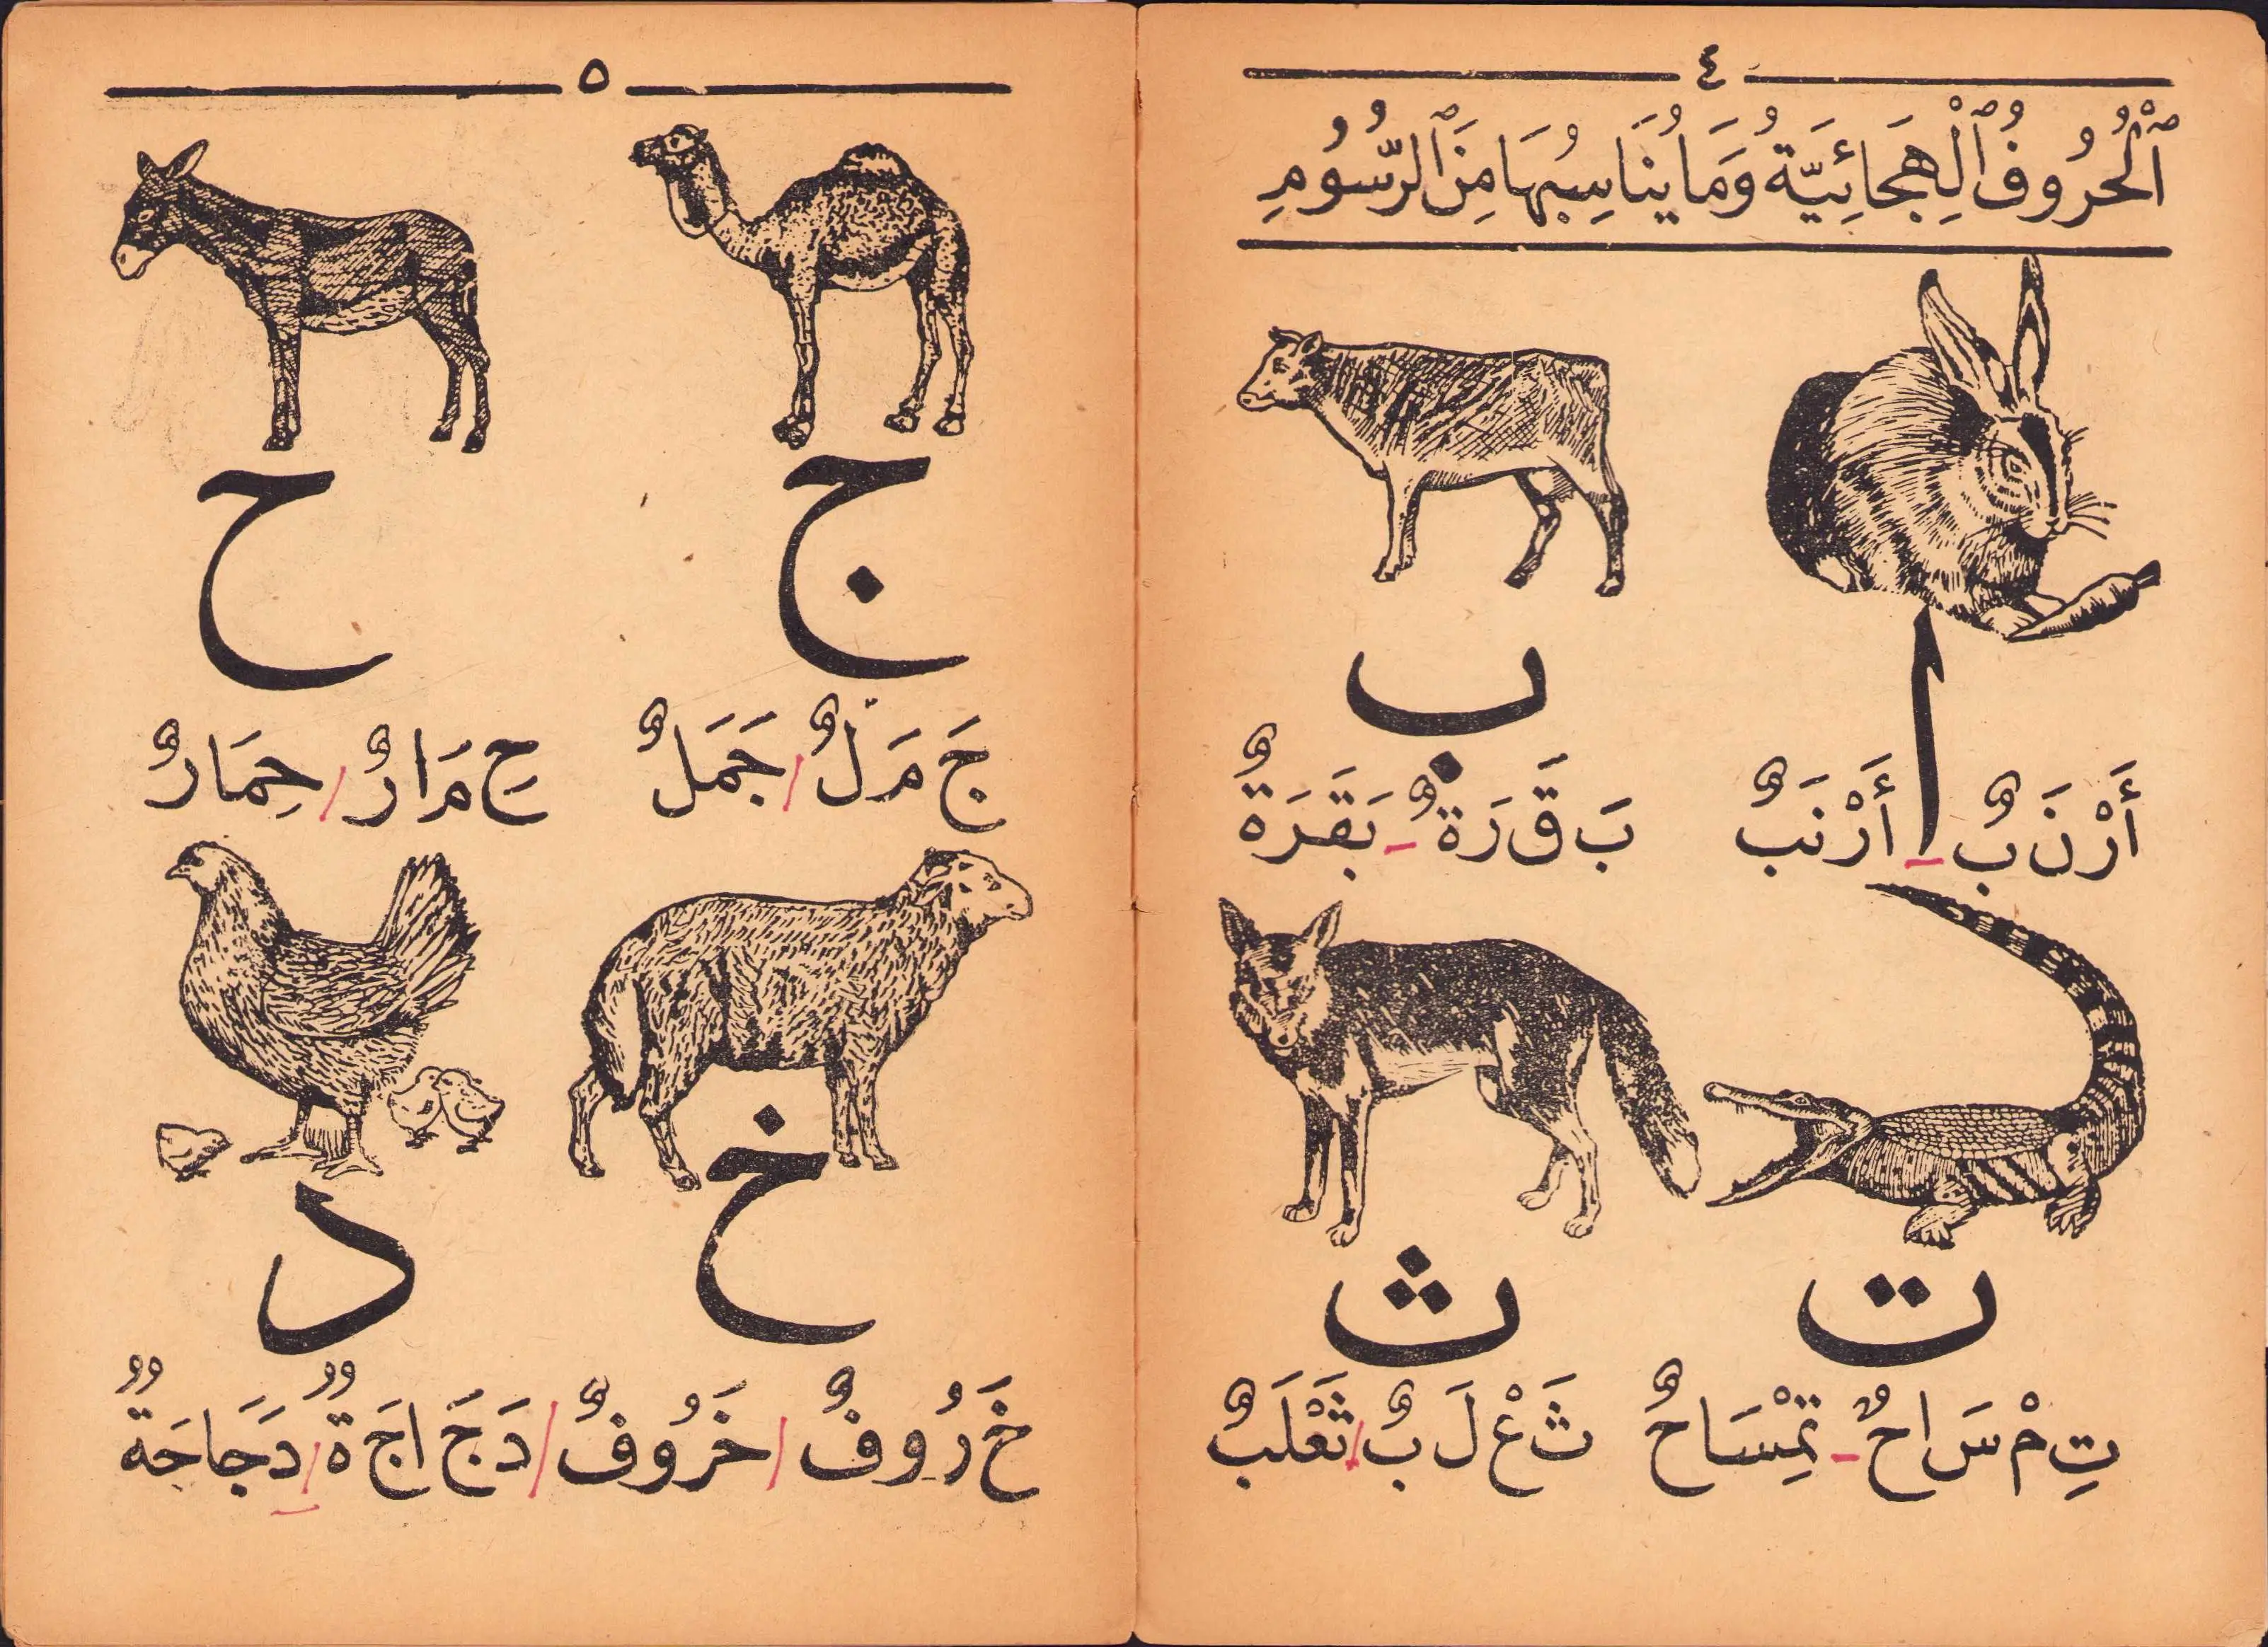 ٤
ٱلْحُرُوفُ ٱلْهِجَائِيَّةُ وَمَا يُنَاسِبُهَا مِنَ ٱلرُّسُومِ
ا
ب
أَ رْ نَ بٌ - أَرْنَبٌ
بَ قَ رَ ةٌ - بَقَرَةٌ
ت
ث
تِ مْ سَ ا حٌ - تِمْسَاحٌ
ثَ عْ لَ بٌ / ثَعْلَبٌ
٥
ج
ح
جَ مَ لٌ / جَمَلٌ
حِ مَ ا رٌ / حِمَارٌ
خ
د
خَ رُ و فٌ / خَرُوفٌ / دَ جَ ا جَ ةٌ / دَجَاجَةٌ